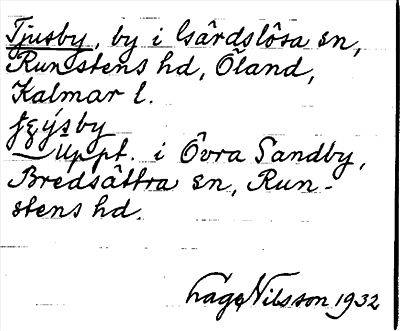 Tjusby, by i Gårdslösa sn,
Runstens hd, Öland,
Kalmar l.
Uppt. i Övra Sandby,
Bredsättra sn, Run-
stens hd.
Nilsson 1932